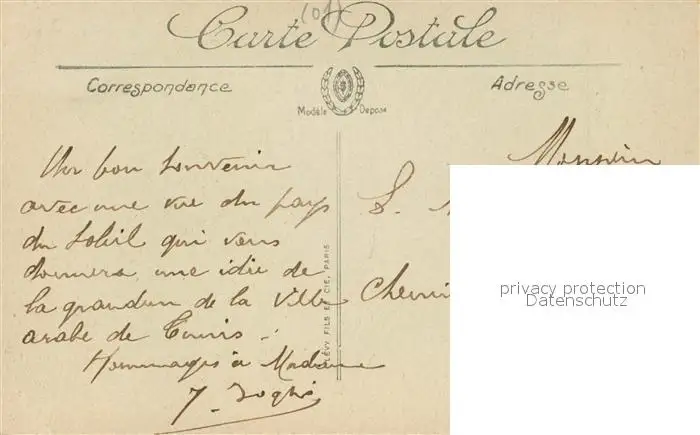 (01)
Carte Postale
Correspondance
Adresse
Modèle Déposé
Un bon souvenir
avec une vue du pays
du soleil qui vous
donnera une idée de
la grandeur de la Ville
arabe de Tunis.
Hommages à Madame
LÉVY FILS ET CIE, PARIS
Monsieur
S.
privacy protection
Datenschutz